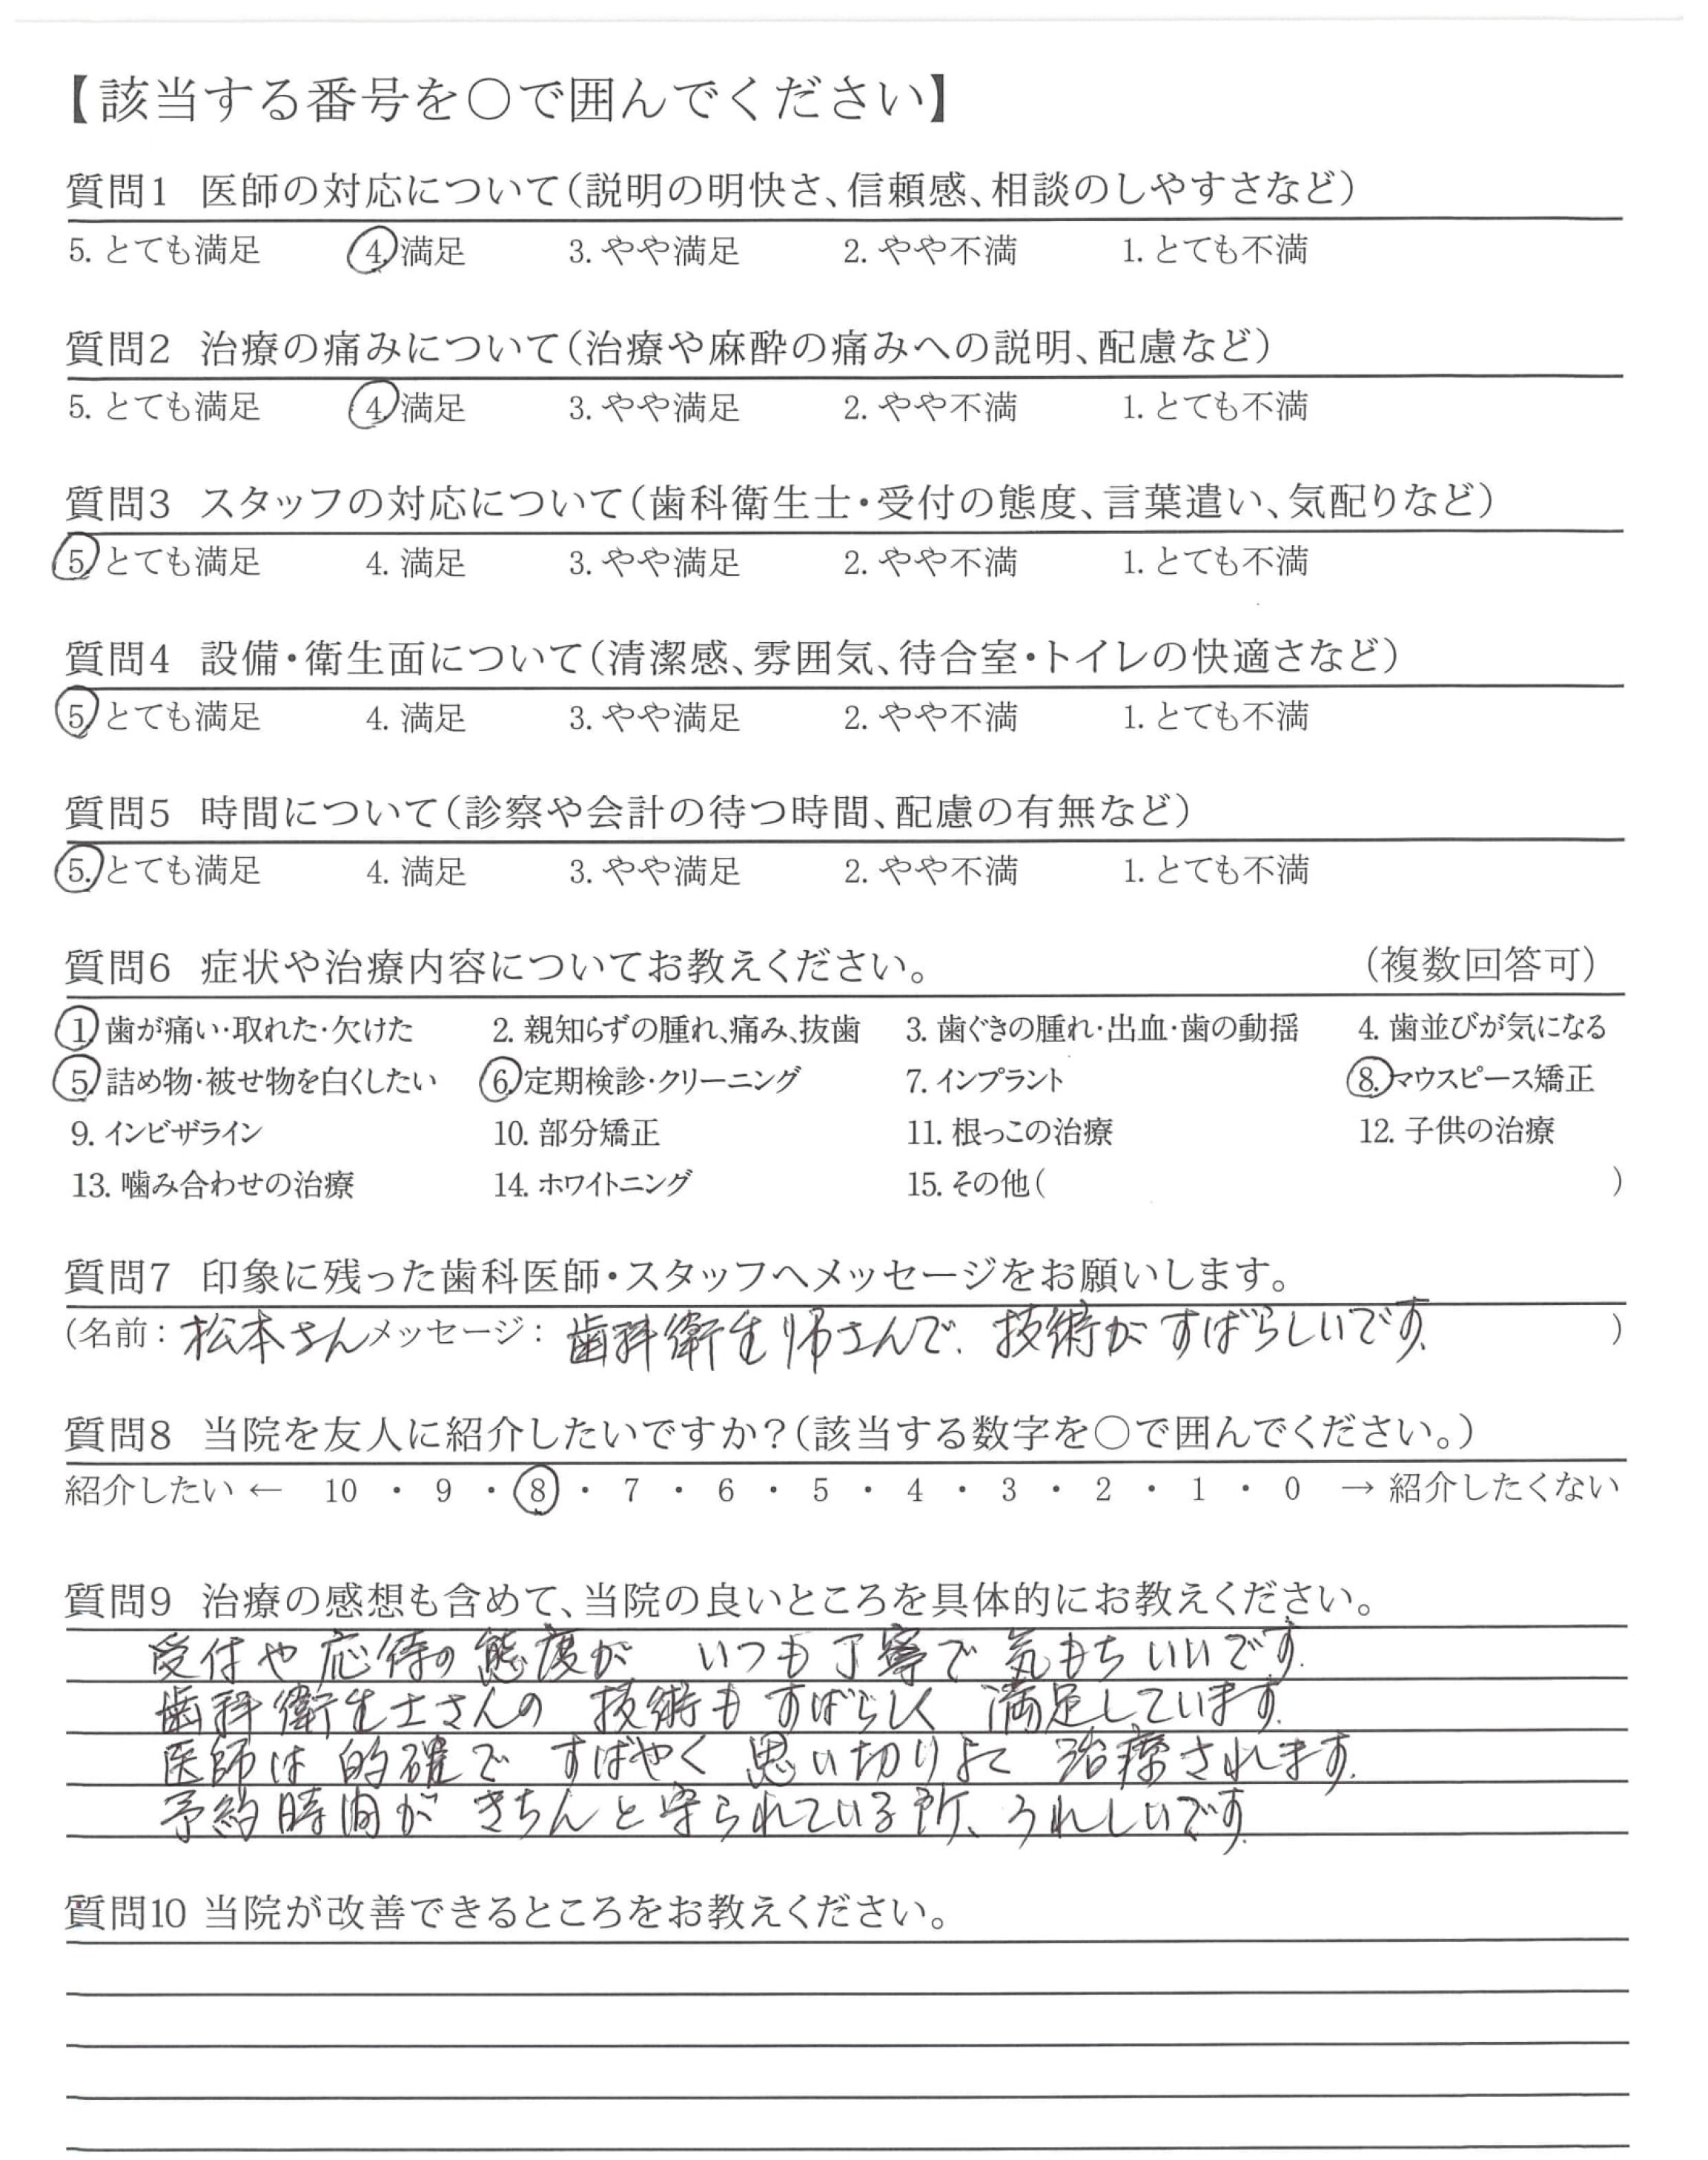 【該当する番号を○で囲んでください】
質問1 医師の対応について(説明の明快さ、信頼感、相談のしやすさなど)
5. とても満足 4. 満足 3. やや満足 2. やや不満 1. とても不満
質問2 治療の痛みについて(治療や麻酔の痛みへの説明、配慮など)
5. とても満足 4. 満足 3. やや満足 2. やや不満 1. とても不満
質問3 スタッフの対応について(歯科衛生士・受付の態度、言葉遣い、気配りなど)
5. とても満足 4. 満足 3. やや満足 2. やや不満 1. とても不満
質問4 設備・衛生面について(清潔感、雰囲気、待合室・トイレの快適さなど)
5. とても満足 4. 満足 3. やや満足 2. やや不満 1. とても不満
質問5 時間について(診察や会計の待つ時間、配慮の有無など)
5. とても満足 4. 満足 3. やや満足 2. やや不満 1. とても不満
質問6 症状や治療内容についてお教えください。 (複数回答可)
1. 歯が痛い・取れた・欠けた 2. 親知らずの腫れ、痛み、抜歯 3. 歯ぐきの腫れ・出血・歯の動揺 4. 歯並びが気になる
5. 詰め物・被せ物を白くしたい 6. 定期検診・クリーニング 7. インプラント 8. マウスピース矯正
9. インビザライン 10. 部分矯正 11. 根っこの治療 12. 子供の治療
13. 噛み合わせの治療 14. ホワイトニング 15. その他( )
質問7 印象に残った歯科医師・スタッフへメッセージをお願いします。
(名前: 松本さん メッセージ: 歯科衛生師さんで、技術がすばらしいです。 )
質問8 当院を友人に紹介したいですか?(該当する数字を○で囲んでください。)
紹介したい ← 10 ・ 9 ・ 8 ・ 7 ・ 6 ・ 5 ・ 4 ・ 3 ・ 2 ・ 1 ・ 0 → 紹介したくない
質問9 治療の感想も含めて、当院の良いところを具体的にお教えください。
受付や応待の態度が いつも丁寧で 気もちいいです。
歯科衛生士さんの 技術も すばらしく 満足しています。
医師は 的確で すばやく 思い切りよく 治療されます。
予約時間が きちんと守られている所、うれしいです。
質問10 当院が改善できるところをお教えください。